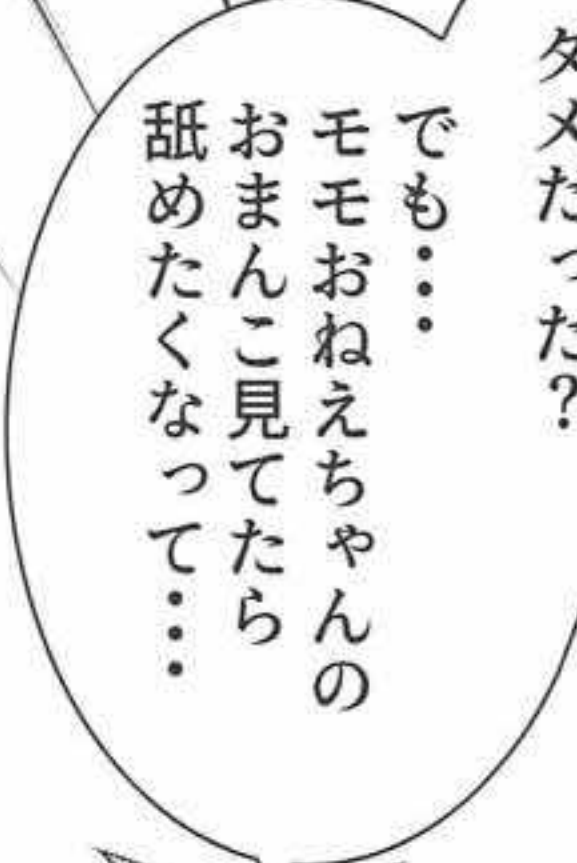 ダメだった?
でも・・・
モモおねえちゃんの
おまんこ見てたら
舐めたくなって・・・